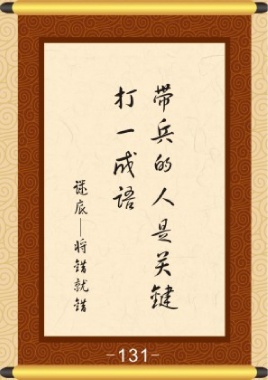 带兵的人是关键
打一成语
谜底——将错就错
-131-